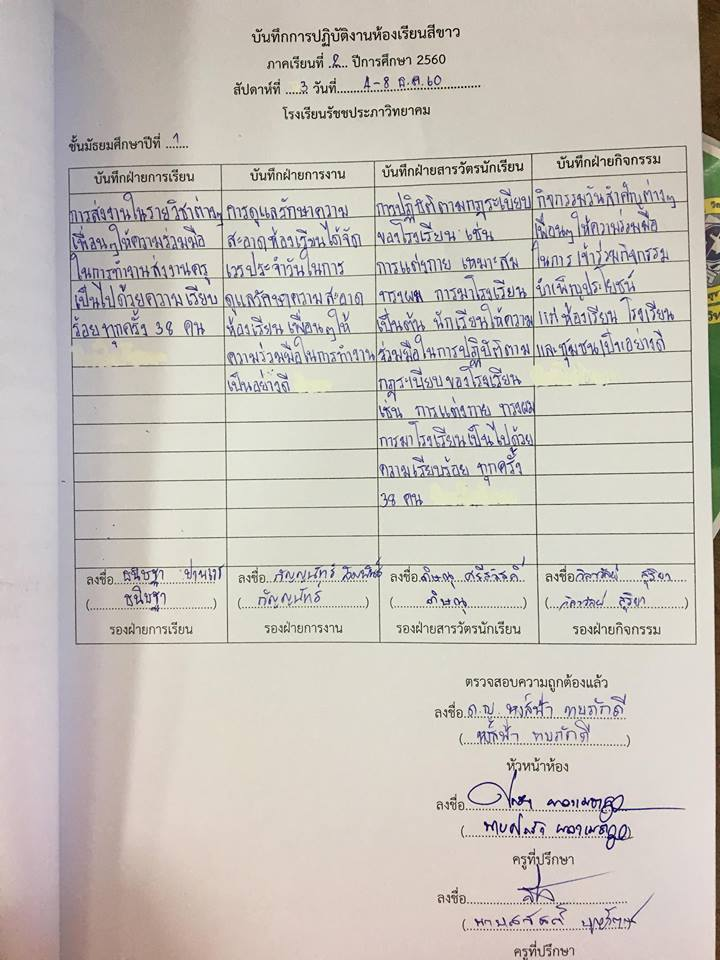 บันทึกการปฏิบัติงานห้องเรียนสีขาว
ภาคเรียนที่ 2 ปีการศึกษา 2560
สัปดาห์ที่ 3 วันที่ 4-8 ธ.ค. 60
โรงเรียนรัชชประภาวิทยาคม
ชั้นมัธยมศึกษาปีที่ 1
บันทึกฝ่ายการเรียน
การส่งงานในรายวิชาต่างๆ
เพื่อนๆให้ความร่วมมือ
ในการทำงานส่งงานครู
เป็นไปด้วยความเรียบ
ร้อยทุกครั้ง 38 คน
บันทึกฝ่ายการงาน
การดูแลรักษาความ
สะอาดห้องเรียนได้จัด
เวรประจำวันในการ
ดูแลรักษาความสะอาด
ห้องเรียนเพื่อนๆให้
ความร่วมมือในการทำงาน
เป็นอย่างดี
บันทึกฝ่ายสารวัตรนักเรียน
การปฏิบัติตามกฎระเบียบ
ของโรงเรียน เช่น
การแต่งกาย เหมาะสม
ทรงผม การมาโรงเรียน
เป็นต้น นักเรียนให้ความ
ร่วมมือในการปฏิบัติตาม
กฎระเบียบของโรงเรียน
เช่น การแต่งกาย ทรงผม
การมาโรงเรียนเป็นไปด้วย
ความเรียบร้อย ทุกครั้ง
38 คน
บันทึกฝ่ายกิจกรรม
กิจกรรมวันสำคัญต่างๆ
เพื่อนๆให้ความร่วมมือ
ในการเข้าร่วมกิจกรรม
บำเพ็ญประโยชน์
แก่ห้องเรียน โรงเรียน
และชุมชนเป็นอย่างดี
ลงชื่อ ธนิษฐา
(ธนิษฐา)
รองฝ่ายการเรียน
ลงชื่อ กัญญนัทธ์
(กัญญนัทธ์)
รองฝ่ายการงาน
ลงชื่อ ศรีสวัสดิ์
รองฝ่ายสารวัตรนักเรียน
ลงชื่อ สุริยา
(สุริยา)
รองฝ่ายกิจกรรม
ตรวจสอบความถูกต้องแล้ว
ลงชื่อ ด.ญ. หงส์ฟ้า ทบภักดี
(หงส์ฟ้า ทบภักดี)
หัวหน้าห้อง
ลงชื่อ
ครูที่ปรึกษา
ลงชื่อ
ครูที่ปรึกษา